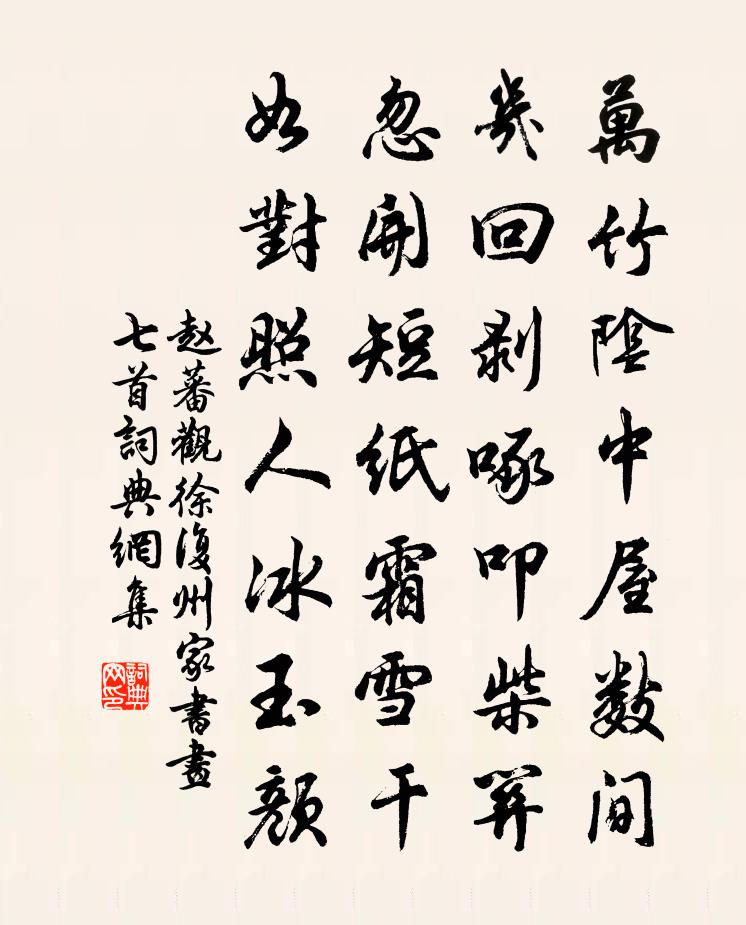 萬竹陰中屋數間
幾回剥啄叩柴關
忽開短紙霜雪干
如對照人冰玉顔
赵蕃觀徐復州家書畫
七首詞典網集
詞典网印